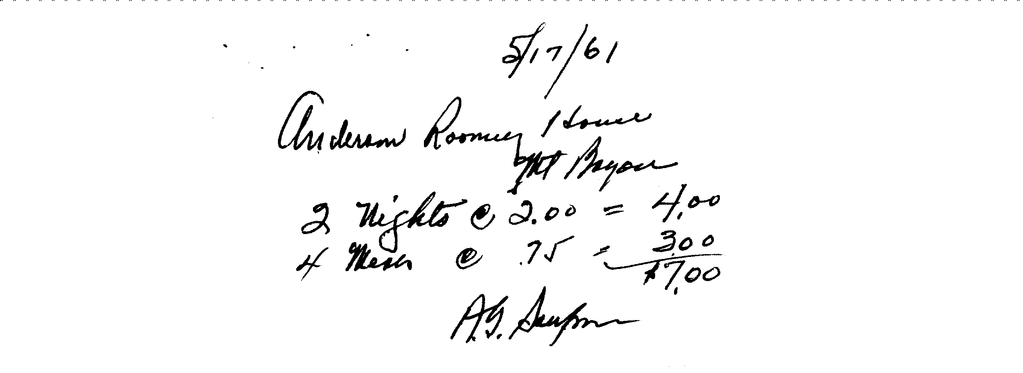 5/17/61
Anderson Rooming House
Mt Bayou
2 Nights @ 2.00 = 4.00
4 Meals @ .75 = 3.00
$7.00
A.G.